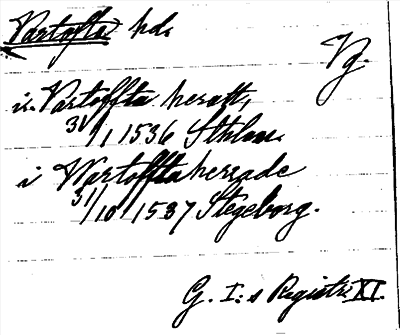 Vartofta hd.
Vg.
i. Vartoffta heratt,
31/1 1536 Sthlm.
i Wartofftaherrade
31/10 1537 Stegeborg.
G. I:s Registr. XI.